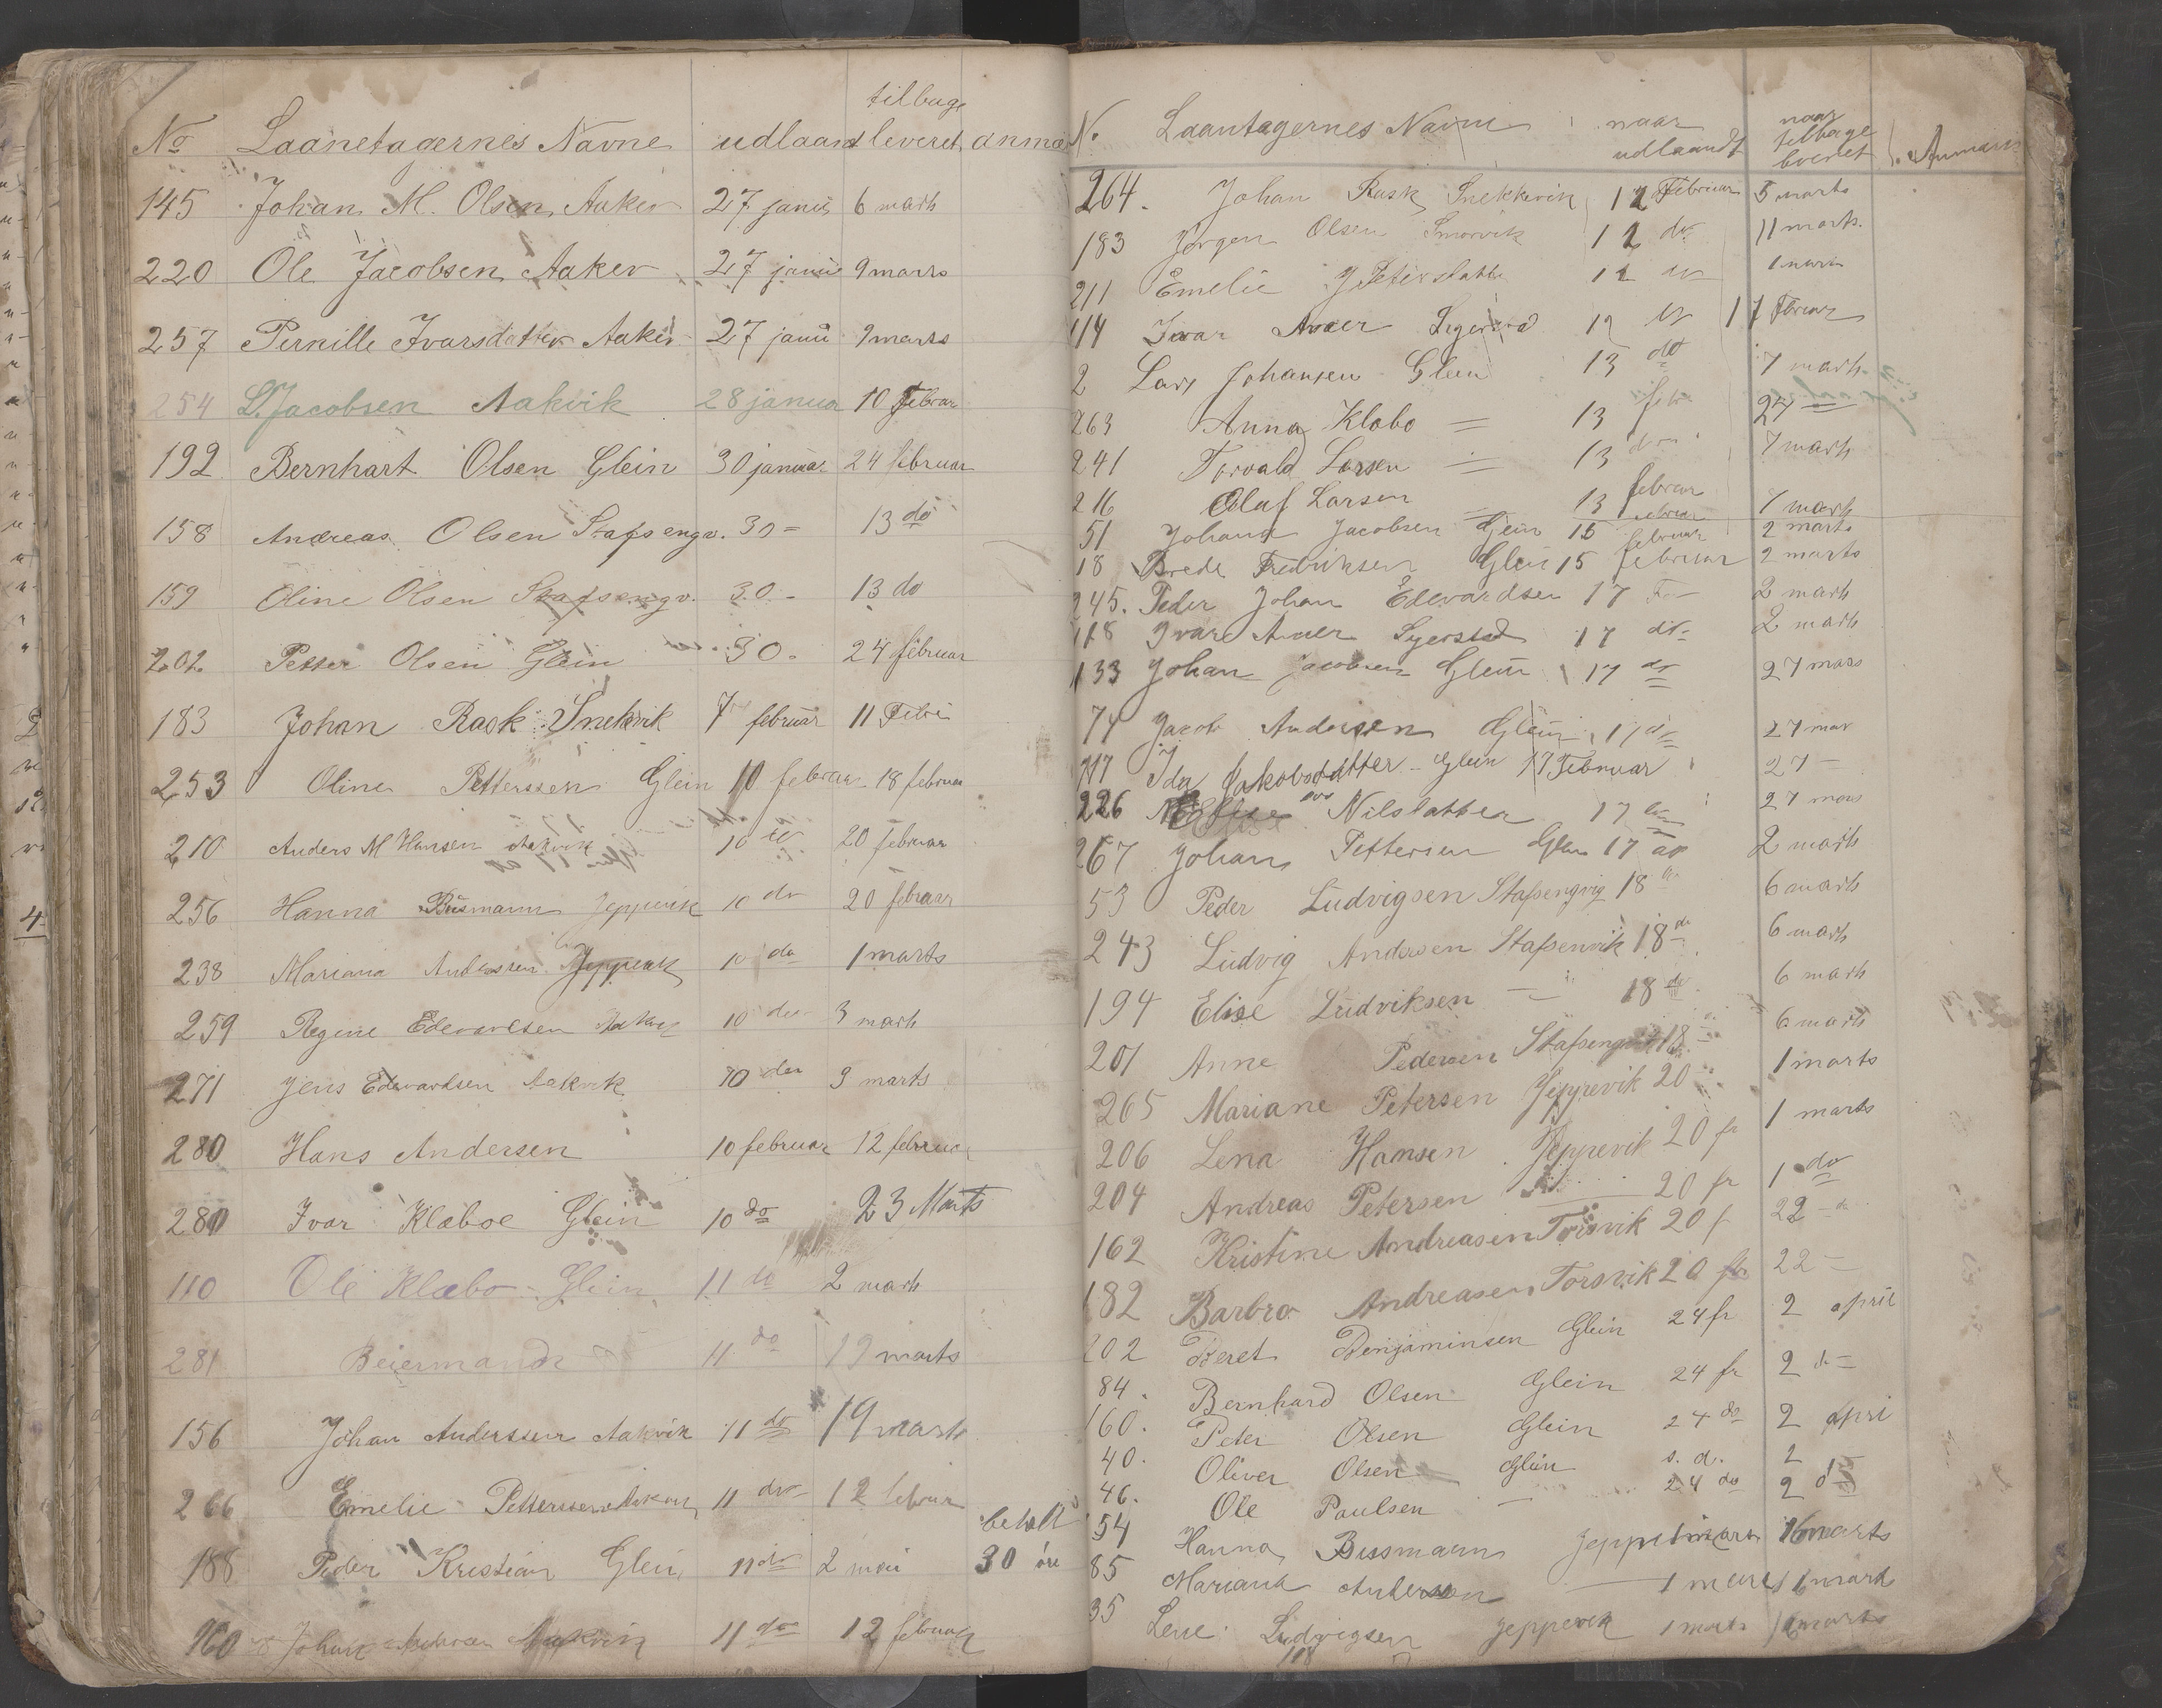 tilbage
No Laanetagernes Navne udlaand leveret anmæ
145 Johan M. Olsen Aaker 27 januá 6 marts
220 Ole Jacobsen Aaker 27 januá 9 marts
257 Pernille Ivarsdatter Aaker 27 januá 9 marts
254 L. Jacobsen Aakvik 28 januar 10 Febrar
192 Bernhart Olsen Glein 30 januar 24 februar
158 Andreas Olsen Stafsengv. 30 = 13 do
159 Oline Olsen Stafsengv. 30 - 13 do
202 Petter Olsen Glein 30 - 24 februar
183 Johan Rask Snekvik 7 februar 11 Febr
253 Oline Petterssen Glein 10 februar 18 februar
210 Anders M Hansen Aakvik 10 do 20 februar
256 Hanna Busmann Jeppevik 10 do 20 februar
238 Mariana Anderssen Jeppevik 10 do 1 marts
259 Regine Edevardsen Aakvik 10 do 3 marts
271 Jens Edevardsen Aakvik 10 do 9 marts
280 Hans Andersen 10 februar 12 februar
280 Ivar Klæboe Glein 10 do 23 Marts
110 Ole Klæbo Glein 11 do 2 marts
281 Beiermand 11 do 19 marts
156 Johan Anderssen Aakvik 11 do 19 marts
266 Emelie Petterssen 11 do 12 februar
188 Peder Kristian Glein 11 do 2 mai betalt 30 öre
160 Johan Aakvik 11 do 12 februar
N. Laantagernes Navne naar udlaandt naar tilbage leveret Anmærk
264. Johan Rask Snekkevik 12 Februar 5 marts
183 Jørgen Olsen Smorvik 12 do 11 marts.
211 Emelie Peterdatter 12 do 1 mars
114 Ivar Aaker 12 do 17 Februar
2 Lars Johansen Glein 13 do 7 marts
263 Anna Klabo = 13 febr 27 =
241 Torvald Larsen = 13 do 7 marts
216 Olaf Larsen 13 februar 7 marts
51 Johan Jacobsen Glein 15 februar 2 marts
18 Brede Fredriksen Glein 15 februar 2 marts
245. Peder Johan Edevardsen 17 F- 2 marts
118 Ivar Aaker 17 do 2 marts
133 Johan Jacobsen Glein 17 do 27 mars
74 Jacob Andersen Glein 17 do 27 mar
Ida Jakobsdatter Glein 17 Februar 27 -
226 Elise Nilsdatter 17 27 mars
267 Johan Pettersen Glein 17 do 2 marts
53 Peder Ludvigsen Stafsengvig 18 6 marts
243 Ludvig Andersen Stafsenvik 18 do 6 marts
194 Elise Ludviksen - " 18 do 6 marts
201 Anne Pedersen Stafsengvik 18 6 marts
265 Mariane Petersen Jeppevik 20 - 1 marts
206 Lena Hansen Jeppevik 20 fr 1 marts
204 Andreas Petersen 20 fr 1 do
162 Kristine Andreasen Torsvik 20 f 22 -
182 Barbro Andreasen Torsvik 20 fr 22 -
202 Beret Benjaminsen Glein 24 fr 2 april
84. Bernhard Olsen Glein 24 fr 2 do
160. Peter Olsen Glein 24 do 2 apri
40. Oliver Olsen Glein s. d. 2 -
46. Ole Paulsen - 24 do 2 do
54 Hanna Bussmann 16 marts
85 Mariank Andersen 1 mars 16 marts
35 Lene Ludvigsen Jeppevik 1 marts 16 marts
118